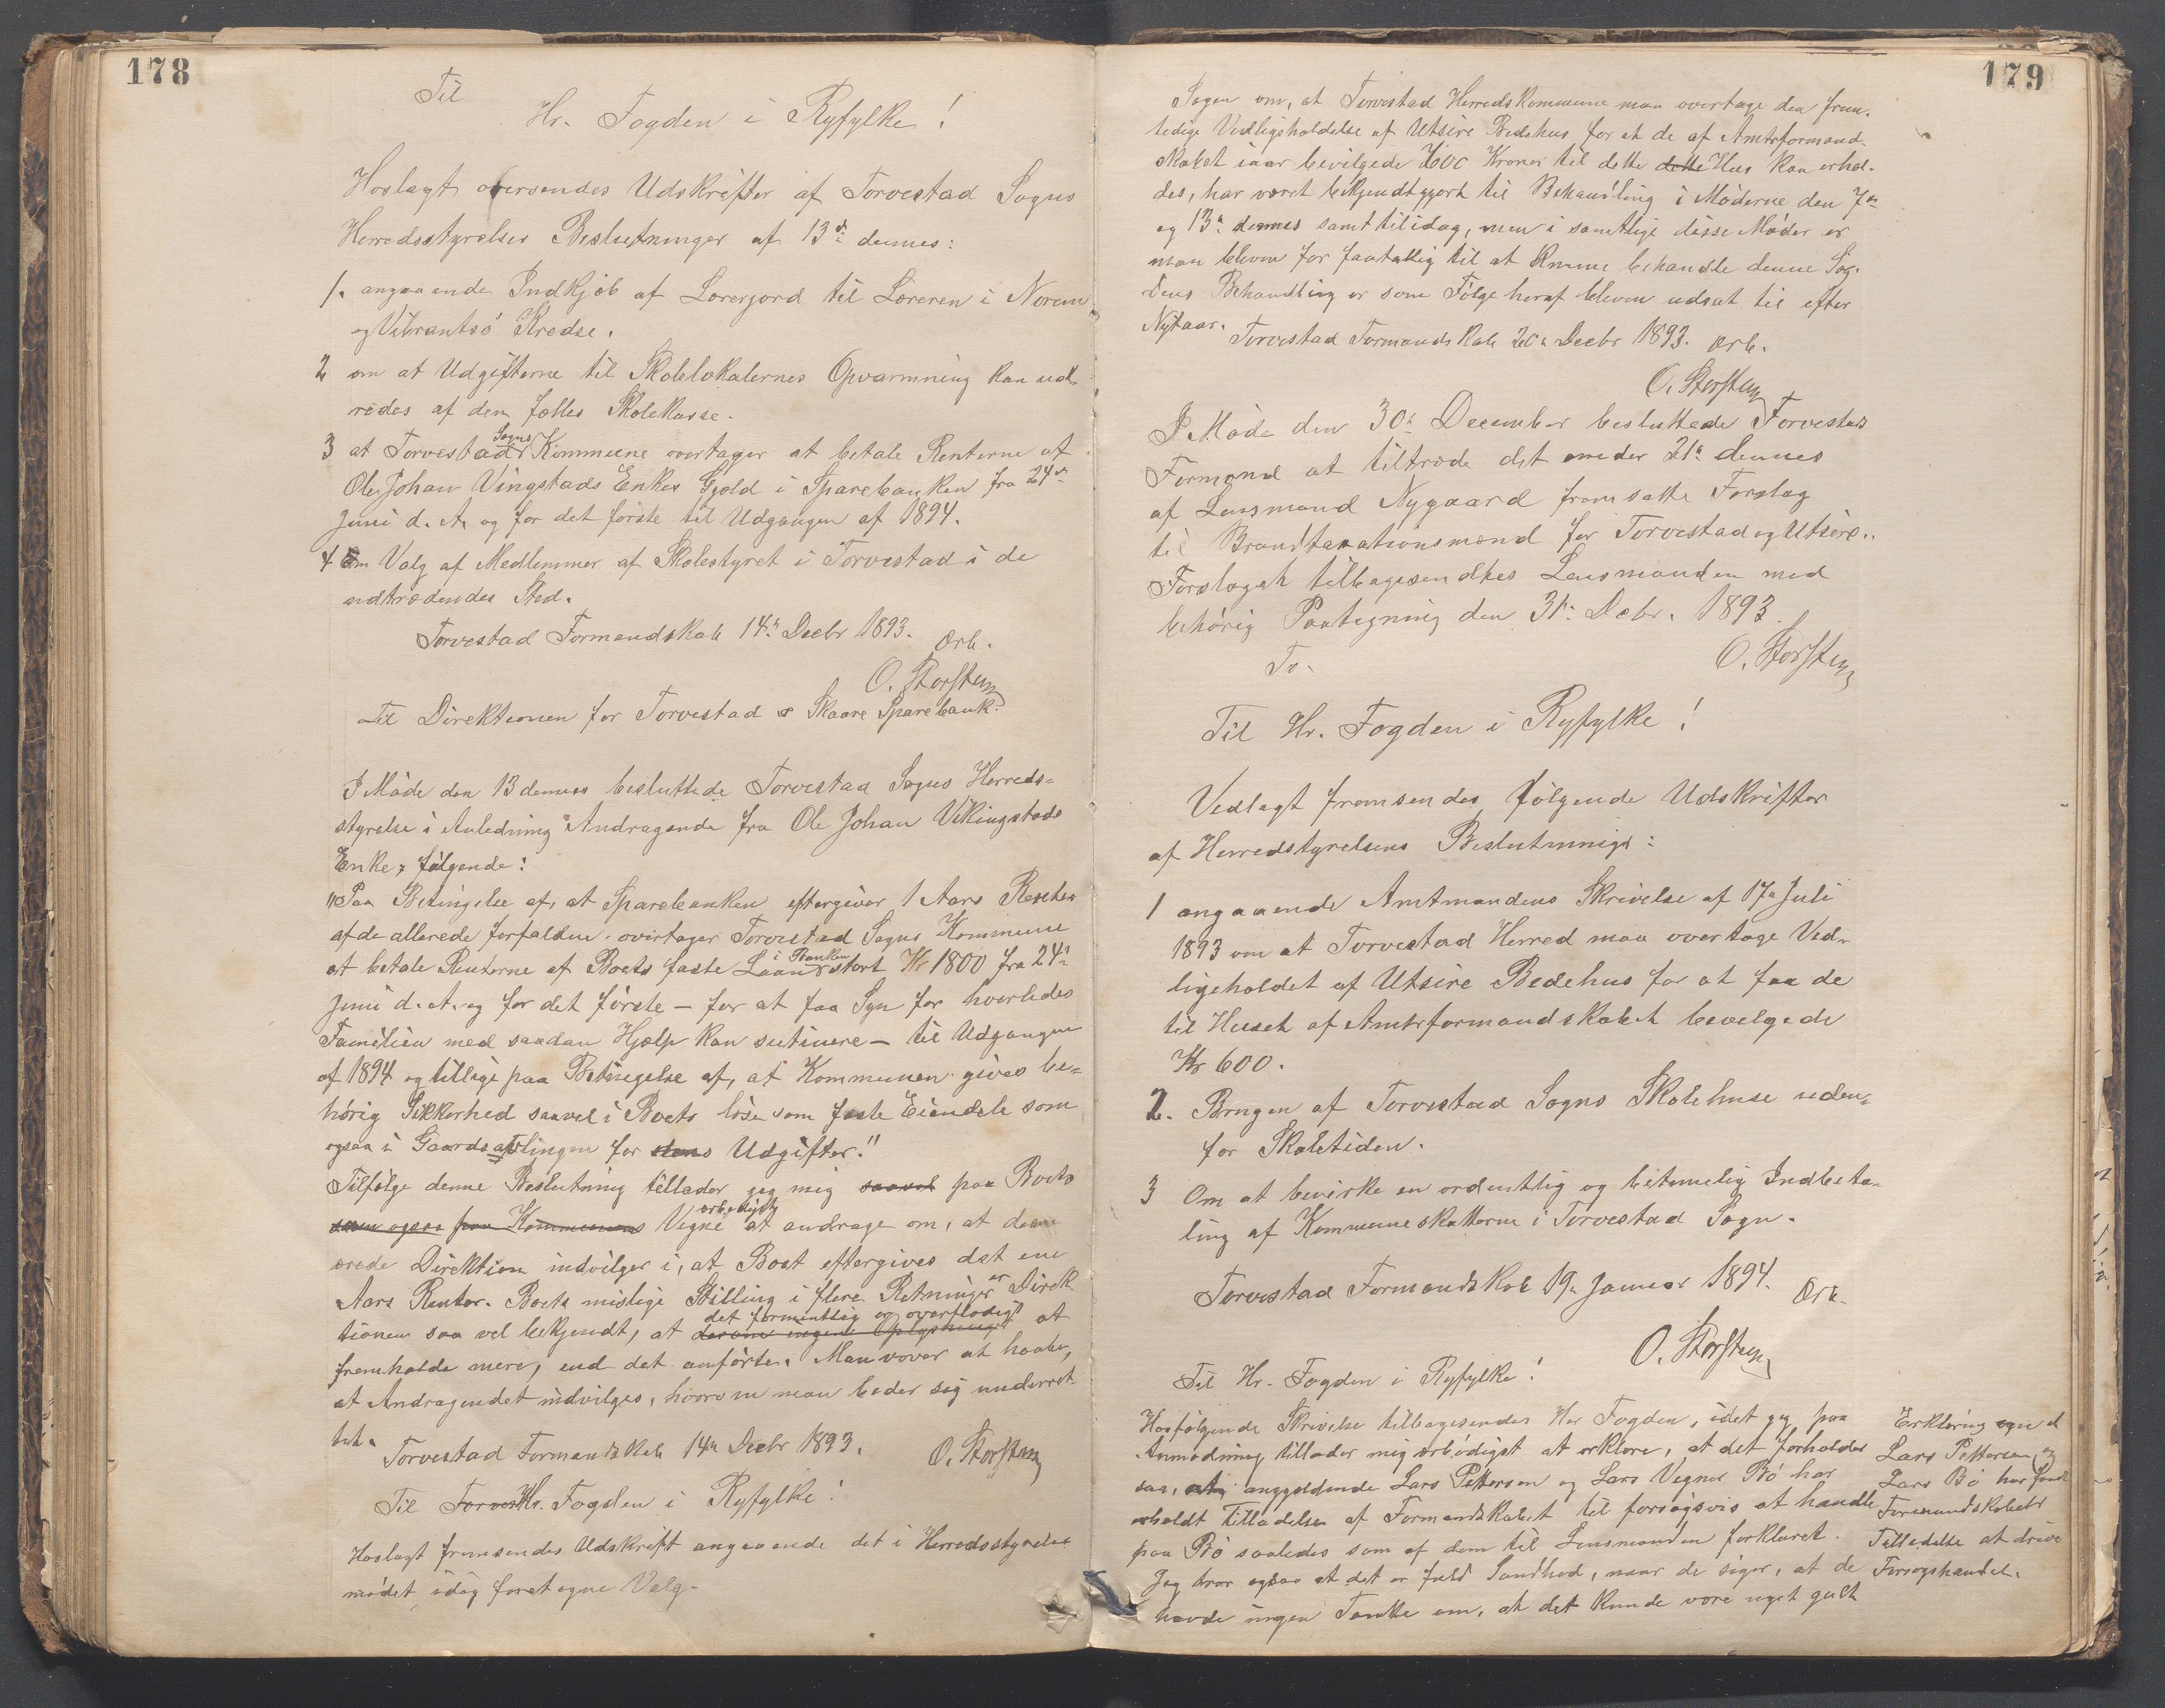 178
Til
Hr. Fogden i Ryfylke!
Hoslagt oversendes Udskrifter af Torvestad Sogns
Herredsstyrelses Beslutninger af 13de dennes:
1. angaaende Indkjøb af Lærerjord til Læreren i Norem
og Vibrantsø Kredse.
2 om at Udgifterne til Skolelokalernes Opvarmning kan ud-
redes af den fælles Skolekasse.
3 at Torvestad Sogns Kommune overtager at betale Renterne af
Ole Johan Vingstads Enkes Gjæld i Sparebanken fra 24de
Juni d. A. og for det første til Udgangen af 1894.
4 Om Valg af Medlemmer af Skolestyret i Torvestad i de
udtrædendes Sted.
Torvestad Formandskab 14de Decbr 1893. Ærb.
O. Storsten
Til Direktionen for Torvestad & Skaare Sparebank.
I Møde den 13 dennes besluttede Torvestad Sogns Herreds-
styrelse i Anledning Andragende fra Ole Johan Vikingstads
Enke, følgende:
"Paa Betingelse af, at Sparebanken eftergiver 1 Aars Renter
af de allerede forfaldne, overtager Torvestad Sogns Kommune
at betale Renterne af Boets faste Laan i Banken stort Kr 1800 fra 24de
Juni d. A. og for det første – for at faa Syn for hvorledes
Familien med saadan Hjælp kan sutinere – til Udgangen
af 1894 og tillige paa Betingelse af, at Kommunen gives be-
hørig Sikkerhed saavel i Boets løse som faste Eiendele som
ogsaa i Gaardsavlingen for dens Udgifter."
Tilfølge denne Beslutning tillader jeg mig saavel paa Boets
som ogsaa paa Kommunens Vegne ærbødigst at andrage om, at den
ærede Direktion indvilger i, at Boet eftergives det ene
Aars Renter. Boets mislige Stilling i flere Retninger er Direk-
tionen saa vel bekjendt, at derom ingen Oplysninger det formentlig er overflødigt at
fremholde mere, end det anførte. Man vover at haabe,
at Andragendet indvilges, hvorom man beder sig underret-
tet.
Torvestad Formandskab 14de Decbr 1893. O. Storsten
Til Torves Hr. Fogden i Ryfylke!
Hoslagt fremsendes Udskrift angaaende det i Herredsstyrelse
mødet idag foretagne Valg.
179
Sagen om, at Torvestad Herredskommune maa overtage den frem-
tidige Vedligeholdelse af Utsire Bedehus for at de af Amtsformand-
skabet iaar bevilgede 600 Kroner til dette dette Hus kan erhol-
des, har været bekjendtgjort til Behandling i Møderne den 7de
og 13de dennes samt til idag, men i samtlige disse Møder er
man bleven for faatallig til at kunne behandle denne Sag.
Dens Behandling er som Følge heraf bleven udsat til efter
Nytaar.
Torvestad Formandskab 20de Decbr 1893. Ærb.
O. Storsten
I Møde den 30te December besluttede Torvestad
Formand at tiltræde det under 21de dennes
af Lensmand Nygaard fremsatte Forslag
til Brandtaxationsmænd for Torvestad og Utsire.
Forslaget tilbagesendtes Lensmanden med
behørig Paategning den 31te Decbr. 1893.
O. Storsten
Til Hr. Fogden i Ryfylke!
Vedlagt fremsendes følgende Udskrifter
af Herredstyrelsens Beslutninger:
1 angaaende Amtmandens Skrivelse af 17de Juli
1893 om at Torvestad Herred maa overtage Ved-
ligeholdet af Utsire Bedehus for at faa de
til Huset af Amtsformandskabet bevelgede
Kr 600.
2. Brugen af Torvestad Sogns Skolehuse uden-
for Skoletiden.
3 Om at bevirke en ordentlig og betimelig Indbeta-
ling af Kommuneskatterne i Torvestad Sogn.
Torvestad Formandskab 19de Januar 1894. Ærb.
O. Storsten
Til Hr. Fogden i Ryfylke!
Hosfølgende Skrivelse tilbagesendes Her Fogden, idet jeg paa
Anmodning tillader mig ærbødigst at erklære, at det forholder
saa, at angjældende Lars Pettersen og Lars Vegner Bø har
erholdt Tilladelse af Formandskabet til forsøgsvis at handle
paa Bø saaledes som af dem til Lensmanden forklaret.
Jeg tror ogsaa at det er fuld Sandhed, naar de siger, at de
havde ingen Tanke om, at det kunde være noget galt
Erklæring
Lars Pettersen og
Lars Bø har faaet
Formandskabets
Tilladelse at drive
Forsøgshandel.